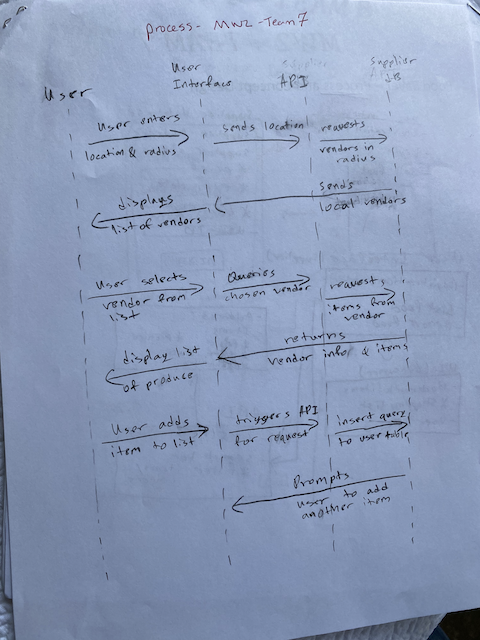 process - MW2 - Team 7
User
User
Interface
API
Supplier
DB
User enters
location & radius
Sends location
requests
vendors in
radius
sends
local vendors
displays
list of vendors
User selects
vendor from
list
Queries
chosen vendor
requests
items from
vendor
returns
vendor info & items
display list
of produce
User adds
item to list
triggers API
for request
insert query
to user table
Prompts
user to add
another item